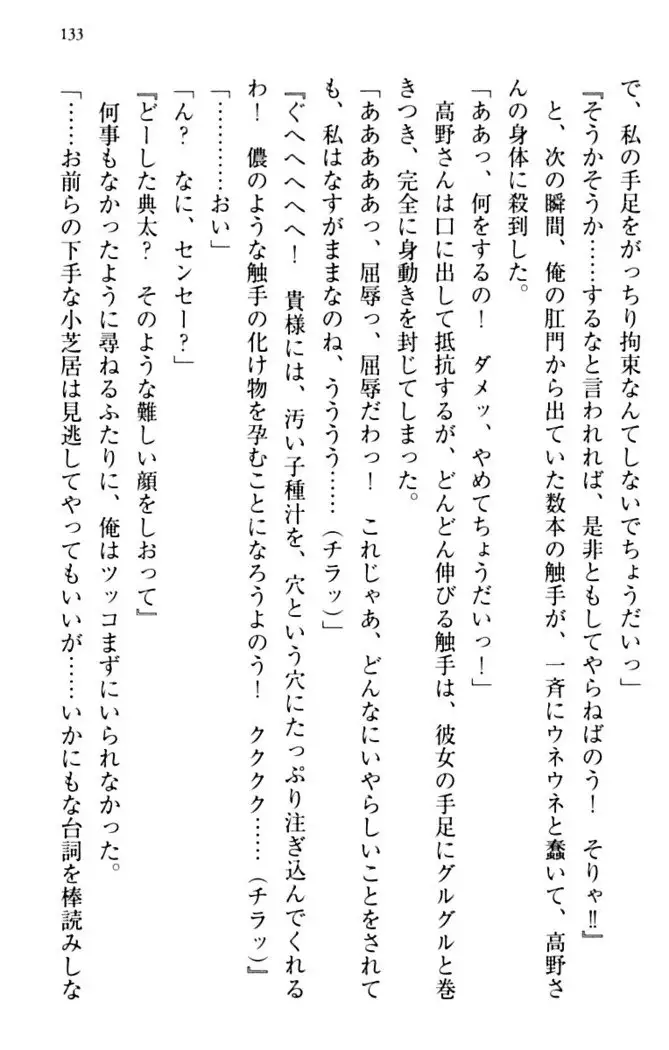 133
で、私の手足をがっちり拘束なんてしないでちょうだいっ」
『そうかそうか……するなと言われれば、是非ともしてやらねばのう！　そりゃ!!』
　と、次の瞬間、俺の肛門から出ていた数本の触手が、一斉にウネウネと蠢いて、高野さ
んの身体に殺到した。
「ああっ、何をするの！　ダメッ、やめてちょうだいっ！」
　高野さんは口に出して抵抗するが、どんどん伸びる触手は、彼女の手足にグルグルと巻
きつき、完全に身動きを封じてしまった。
「あああああっ、屈辱っ、屈辱だわっ！　これじゃあ、どんなにいやらしいことをされて
も、私はなすがままなのね、うううう……（チラッ）」
『ぐへへへへへ！　貴様には、汚い子種汁を、穴という穴にたっぷり注ぎ込んでくれる
わ！　儂のような触手の化け物を孕むことになろうよのう！　クククク……（チラッ）』
「…………おい」
「ん？　なに、センセー？」
『どーした典太？　そのような難しい顔をしおって』
　何事もなかったように尋ねるふたりに、俺はツッコまずにいられなかった。
「……お前らの下手な小芝居は見逃してやってもいいが……いかにもな台詞を棒読みしな